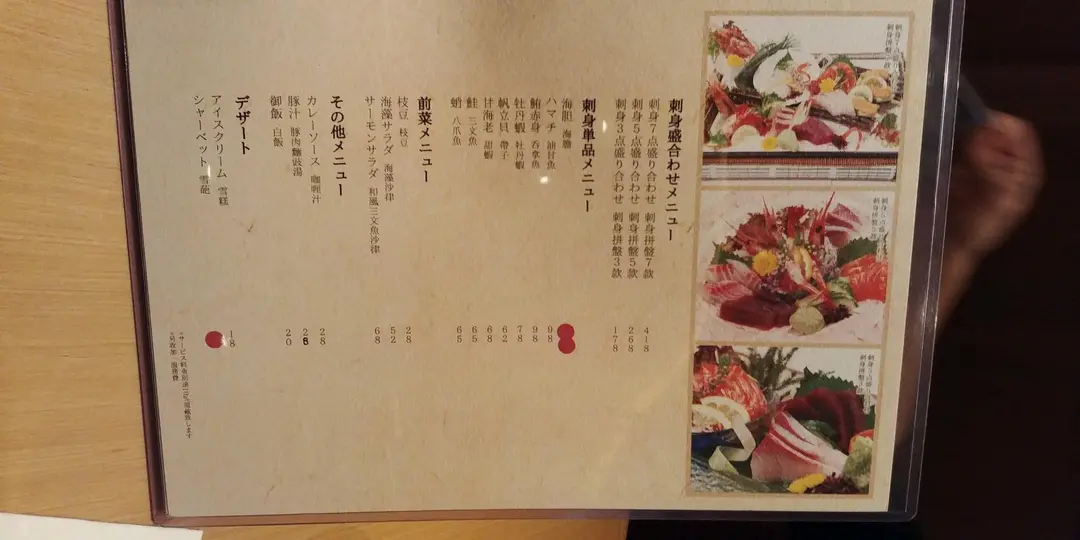 刺身7点盛り
刺身拼盤7款
刺身5点盛り
刺身拼盤5款
刺身3点盛り
刺身拼盤3款
刺身盛合わせメニュー
刺身7点盛り合わせ 刺身拼盤7款 418
刺身5点盛り合わせ 刺身拼盤5款 268
刺身3点盛り合わせ 刺身拼盤3款 178
刺身単品メニュー
海胆 海膽
ハマチ 油甘魚 98
鮪赤身 吞拿魚 98
牡丹蝦 牡丹蝦 78
帆立貝 帶子 62
甘海老 甜蝦 68
鮭 三文魚 65
蛸 八爪魚 65
前菜メニュー
枝豆 枝豆 28
海藻サラダ 海藻沙律 52
サーモンサラダ 和風三文魚沙律 68
その他メニュー
カレーソース 咖喱汁 28
豚汁 豚肉麵豉湯
御飯 白飯 20
デザート
アイスクリーム 雪糕 18
シャーベット 雪葩
*サービス料